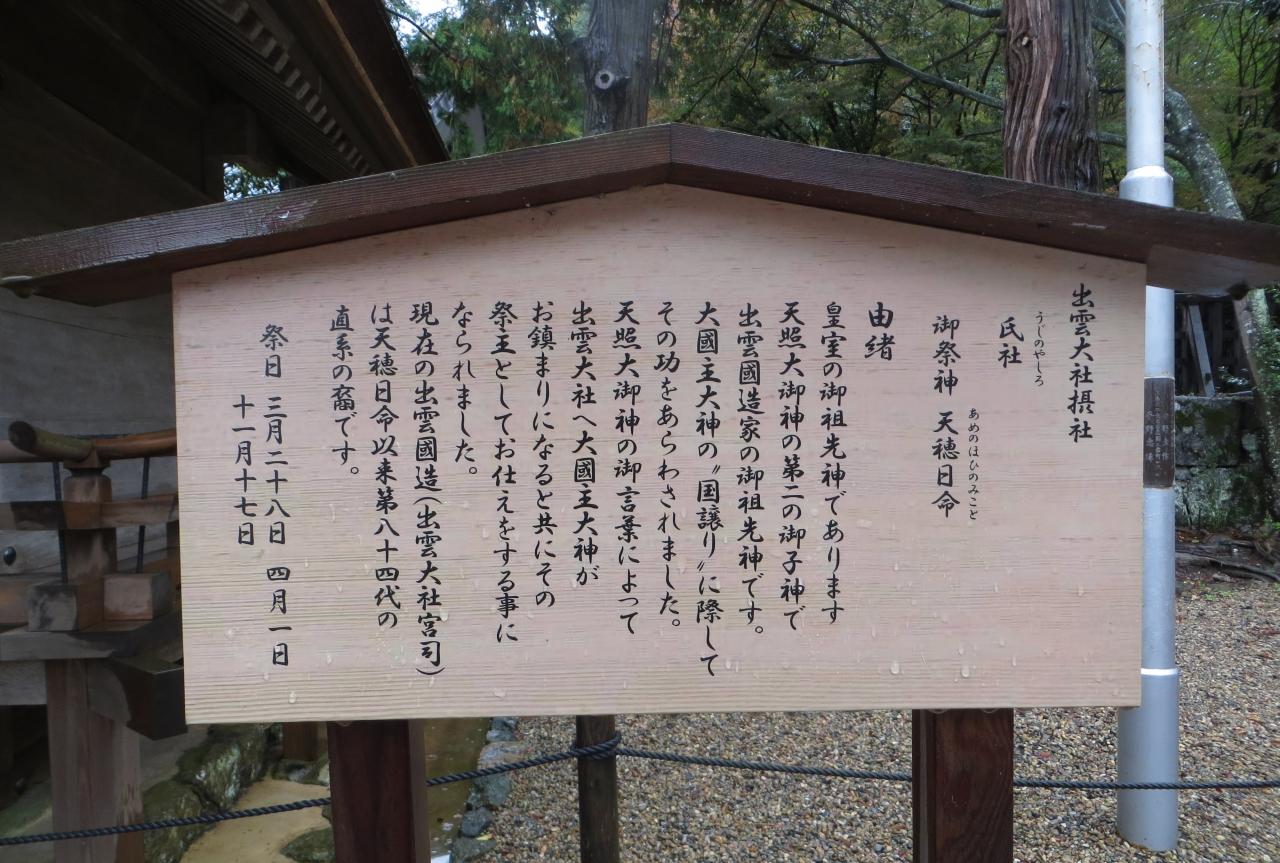 出雲大社摂社
氏社
うじのやしろ
御祭神 天穂日命
あめのほひのみこと
由緒
皇室の御祖先神であります
天照大御神の第二の御子神で
出雲國造家の御祖先神です。
大國主大神の〝国譲り〟に際して
その功をあらわされました。
天照大御神の御言葉によって
出雲大社へ大國主大神が
お鎮まりになると共にその
祭主としてお仕えをする事に
なられました。
現在の出雲國造(出雲大社宮司)
は天穂日命以来第八十四代の
直系の裔です。
祭日 三月二十八日 四月一日
十一月十七日